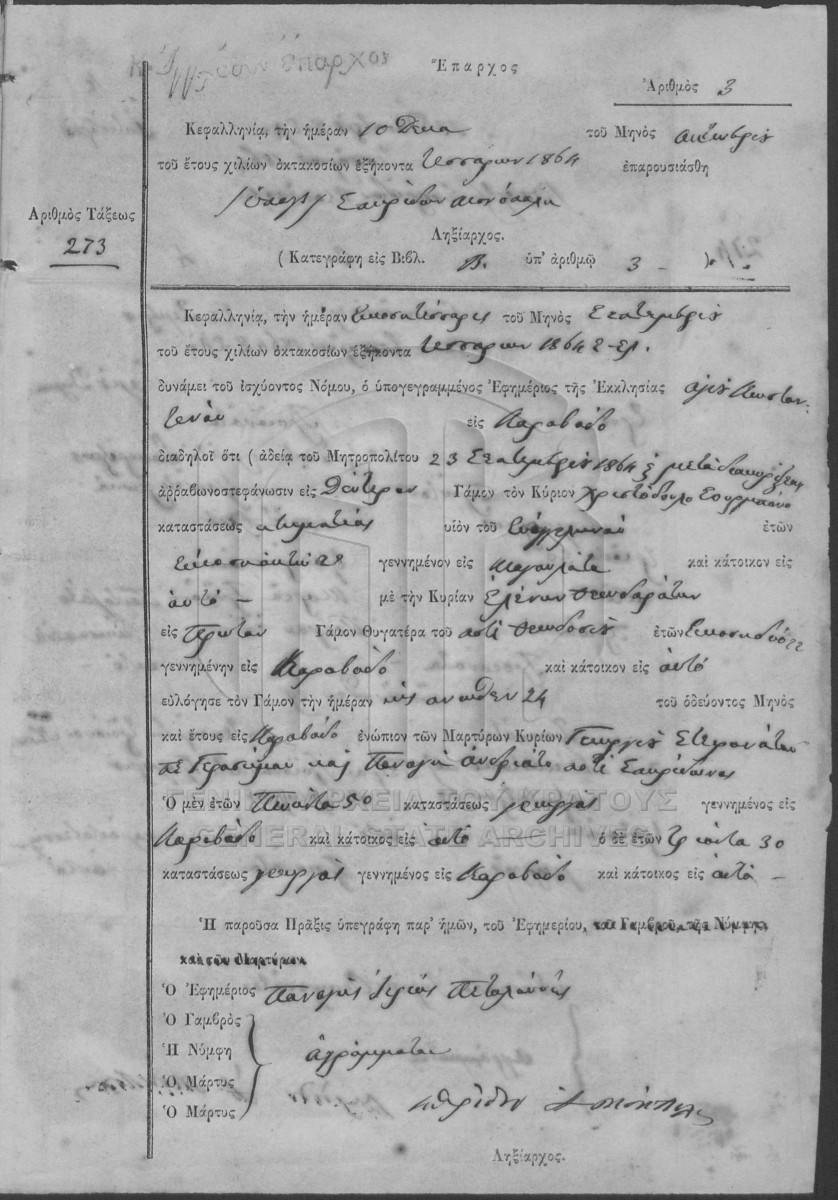 Ἔπαρχος
Ἔπαρχος
Ἀριθμὸς 3
Κεφαλληνίᾳ, τὴν ἡμέραν 10 Δεκα τοῦ Μηνὸς
τοῦ ἔτους χιλίων ὀκτακοσίων ἑξήκοντα τεσσάρων 1864 ἐπαρουσιάσθη
Σπυρίδων
Ἀριθμὸς Τάξεως
273
Ληξίαρχος.
( Κατεγράφη εἰς Βιβλ. Β. ὑπ' ἀριθμῷ 3 -
Κεφαλληνίᾳ, τὴν ἡμέραν εικοσιτέσσαρες τοῦ Μηνὸς Σεπτεμβρίου
τοῦ ἔτους χιλίων ὀκτακοσίων ἑξήκοντα τεσσάρων 1864
δυνάμει τοῦ ἰσχύοντος Νόμου, ὁ ὑπογεγραμμένος Ἐφημέριος τῆς Ἐκκλησίας αγίου Κωσταν-
τίνου εἰς Καραβάδο
διαδηλοῖ ὅτι ( ἀδείᾳ τοῦ Μητροπολίτου 23 Σεπτεμβρίου 1864
ἀῤῥαβωνοστεφάνωσιν εἰς Δεύτερον Γάμον τὸν Κύριον Χριστόδουλο
καταστάσεως υἱὸν τοῦ ἐτῶν
εικοσιοκτώ 28 γεννημένον εἰς καὶ κάτοικον εἰς
αυτό - μὲ τὴν Κυρίαν Ελένην
εἰς Πρώτον Γάμον Θυγατέρα τοῦ ποτέ Θεοδοσίου ἐτῶν εικοσιδύο 22
γεννημένην εἰς Καραβάδο καὶ κάτοικον εἰς αυτό
εὐλόγησε τὸν Γάμον τὴν ἡμέραν εις άνωθεν 24 τοῦ ὁδεύοντος Μηνὸς
καὶ ἔτους εἰς Καραβάδο ἐνώπιον τῶν Μαρτύρων Κυρίων Γεωργίου Στεφανάτου
Γερασίμου και Παναγή ποτέ Σπυρίδωνος
Ὁ μὲν ἐτῶν Πενήντα 50 καταστάσεως γεωργός γεννημένος εἰς
Καραβάδο καὶ κάτοικος εἰς αυτό ὁ δὲ ἐτῶν τριάντα 30
καταστάσεως γεωργός γεννημένος εἰς Καραβάδο καὶ κάτοικος εἰς αυτό -
ΓΕΝΙΚΑ ΑΡΧΕΙΑ ΤΟΥ ΚΡΑΤΟΥΣ
GENERAL STATE ARCHIVES
Ἡ παροῦσα Πρᾶξις ὑπεγράφη παρ' ἡμῶν, τοῦ Ἐφημερίου, τοῦ Γαμβροῦ, τῆς Νύμφης
καὶ τῶν Μαρτύρων
Ὁ Ἐφημέριος Παναγής Ιερεύς
Ὁ Γαμβρὸς
Ἡ Νύμφη αγράμματοι
Ὁ Μάρτυς
Ὁ Μάρτυς
Ληξίαρχος.